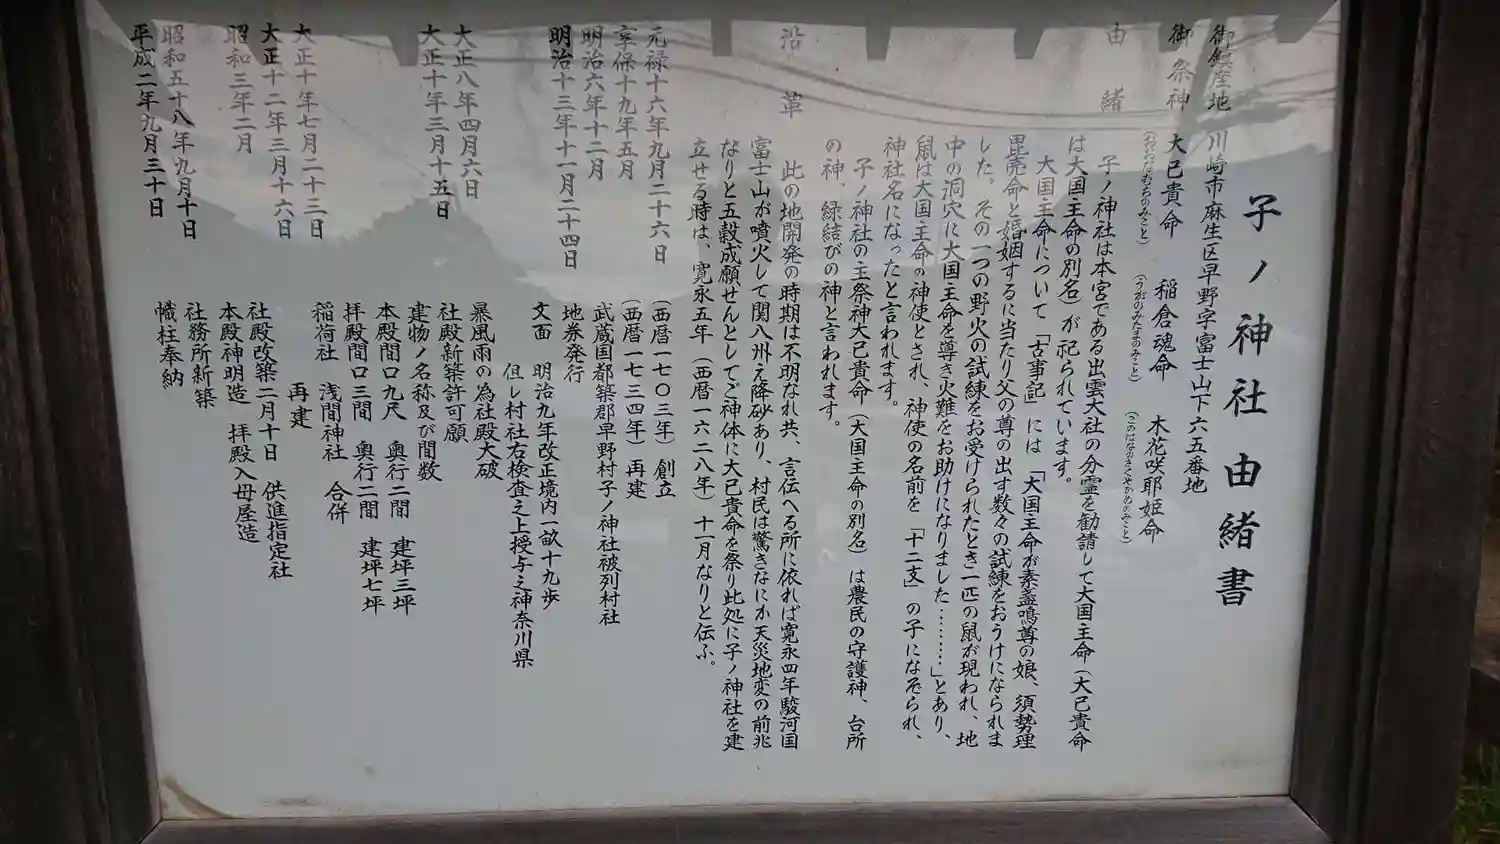 子ノ神社由緒書
御鎮座地 川崎市麻生区早野字富士山下六五番地
御祭神 大己貴命 稲倉魂命 木花咲耶姫命
(おおなむちのみこと) (うがのみたまのみこと) (このはなのさくやひめのみこと)
由緒
子ノ神社は本宮である出雲大社の分霊を勧請して大国主命(大己貴命
は大国主命の別名)が祀られています。
大国主命について「古事記」には「大国主命が素盞鳴尊の娘、須勢理
毘売命と婚姻するに当たり父の尊の出す数々の試練をおうけになられま
した。その一つの野火の試練をお受けられたとき一匹の鼠が現われ、地
中の洞穴に大国主命を導き火難をお助けになりました………」とあり、
鼠は大国主命の神使とされ、神使の名前を「十二支」の子になぞらられ、
神社名になったと言われます。
子ノ神社の主祭神大己貴命(大国主命の別名)は農民の守護神、台所
の神、縁結びの神と言われます。
沿革
此の地開発の時期は不明なれ共、言伝へる所に依れば寛永四年駿河国
富士山が噴火して関八州え降砂あり、村民は驚きなにか天災地変の前兆
なりと五穀成願せんとしてご神体に大己貴命を祭り此処に子ノ神社を建
立せる時は、寛永五年(西暦一六二八年)十一月なりと伝ふ。
元禄十六年九月二十六日 (西暦一七〇三年)創立
享保十九年五月 (西暦一七三四年)再建
明治六年十二月 武蔵国都築郡早野村子ノ神社被列村社
明治十三年十一月二十四日 地券発行
文面 明治九年改正境内一畝十九歩
但し村社右検査之上授与之神奈川県
大正八年四月六日 暴風雨の為社殿大破
大正十年三月十五日 社殿新築許可願
建物ノ名称及び間数
本殿間口九尺 奥行二間 建坪三坪
拝殿間口三間 奥行二間 建坪七坪
大正十年七月二十三日 稲荷社 浅間神社 合併
大正十二年三月十六日 再建
昭和三年二月 社殿改築二月十日 供進指定社
本殿神明造 拝殿入母屋造
昭和五十八年九月十日 社務所新築
平成二年九月三十日 幟柱奉納